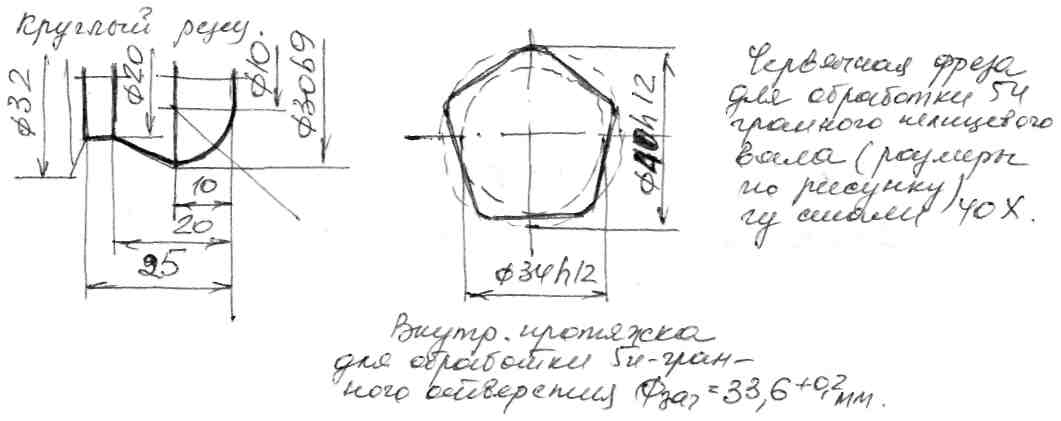 Круглый резец.
φ32
φ20
φ10.
φ30b9
10
20
25
φ40h12
φ34h12
Червячная фреза
для обработки 5и
гранного шлицевого
вала (размеры
по рисунку)
из стали 40Х.
Внутр. протяжка
для обработки 5и-гран-
ного отверстия φзаг=33,6+0,2мм.